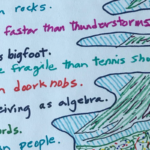 n rocks.
faster than thunderstorms
s bigfoot.
e fragile than tennis sho
n doorknobs.
eiving as algebra.
ords.
n people.